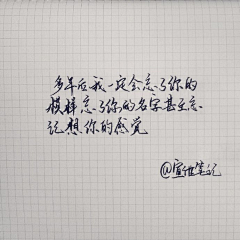 多年后我一定会忘了你的
模样忘了你的名字甚至忘
记想你的感觉
@宣他笔记